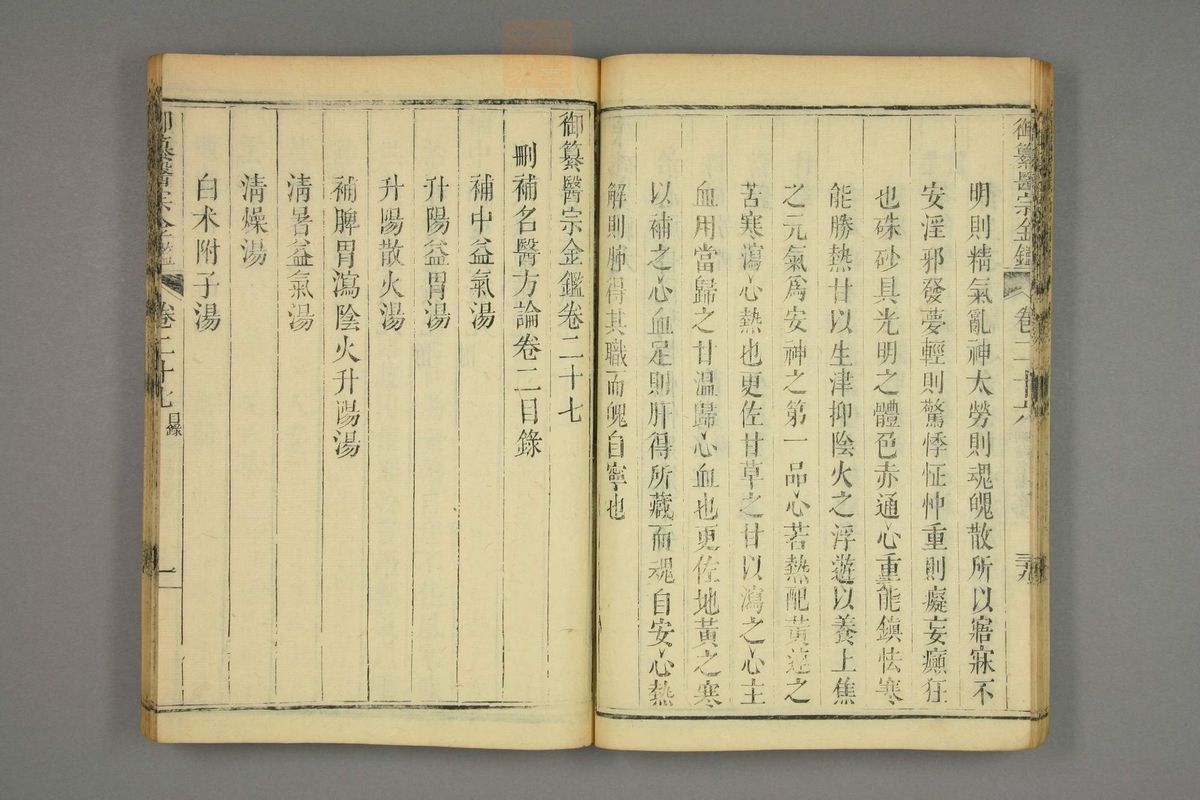 御纂醫宗金鑑 卷二十六 三十八
明則精氣亂神太勞則魂魄散所以寤寐不
安淫邪發夢輕則驚悸怔忡重則癡妄癲狂
也硃砂具光明之體色赤通心重能鎮怯寒
能勝熱甘以生津抑陰火之浮遊以養上焦
之元氣爲安神之第一品心若熱配黃連之
苦寒瀉心熱也更佐甘草之甘以瀉之心主
血用當歸之甘溫歸心血也更佐地黃之寒
以補之心血足則肝得所藏而魂自安心熱
解則肺得其職而魄自寧也
御纂醫宗金鑑卷二十七
刪補名醫方論卷二目錄
補中益氣湯
升陽益胃湯
升陽散火湯
補脾胃瀉陰火升陽湯
清暑益氣湯
清燥湯
白朮附子湯
御纂醫宗金鑑 卷二十七 目錄 一